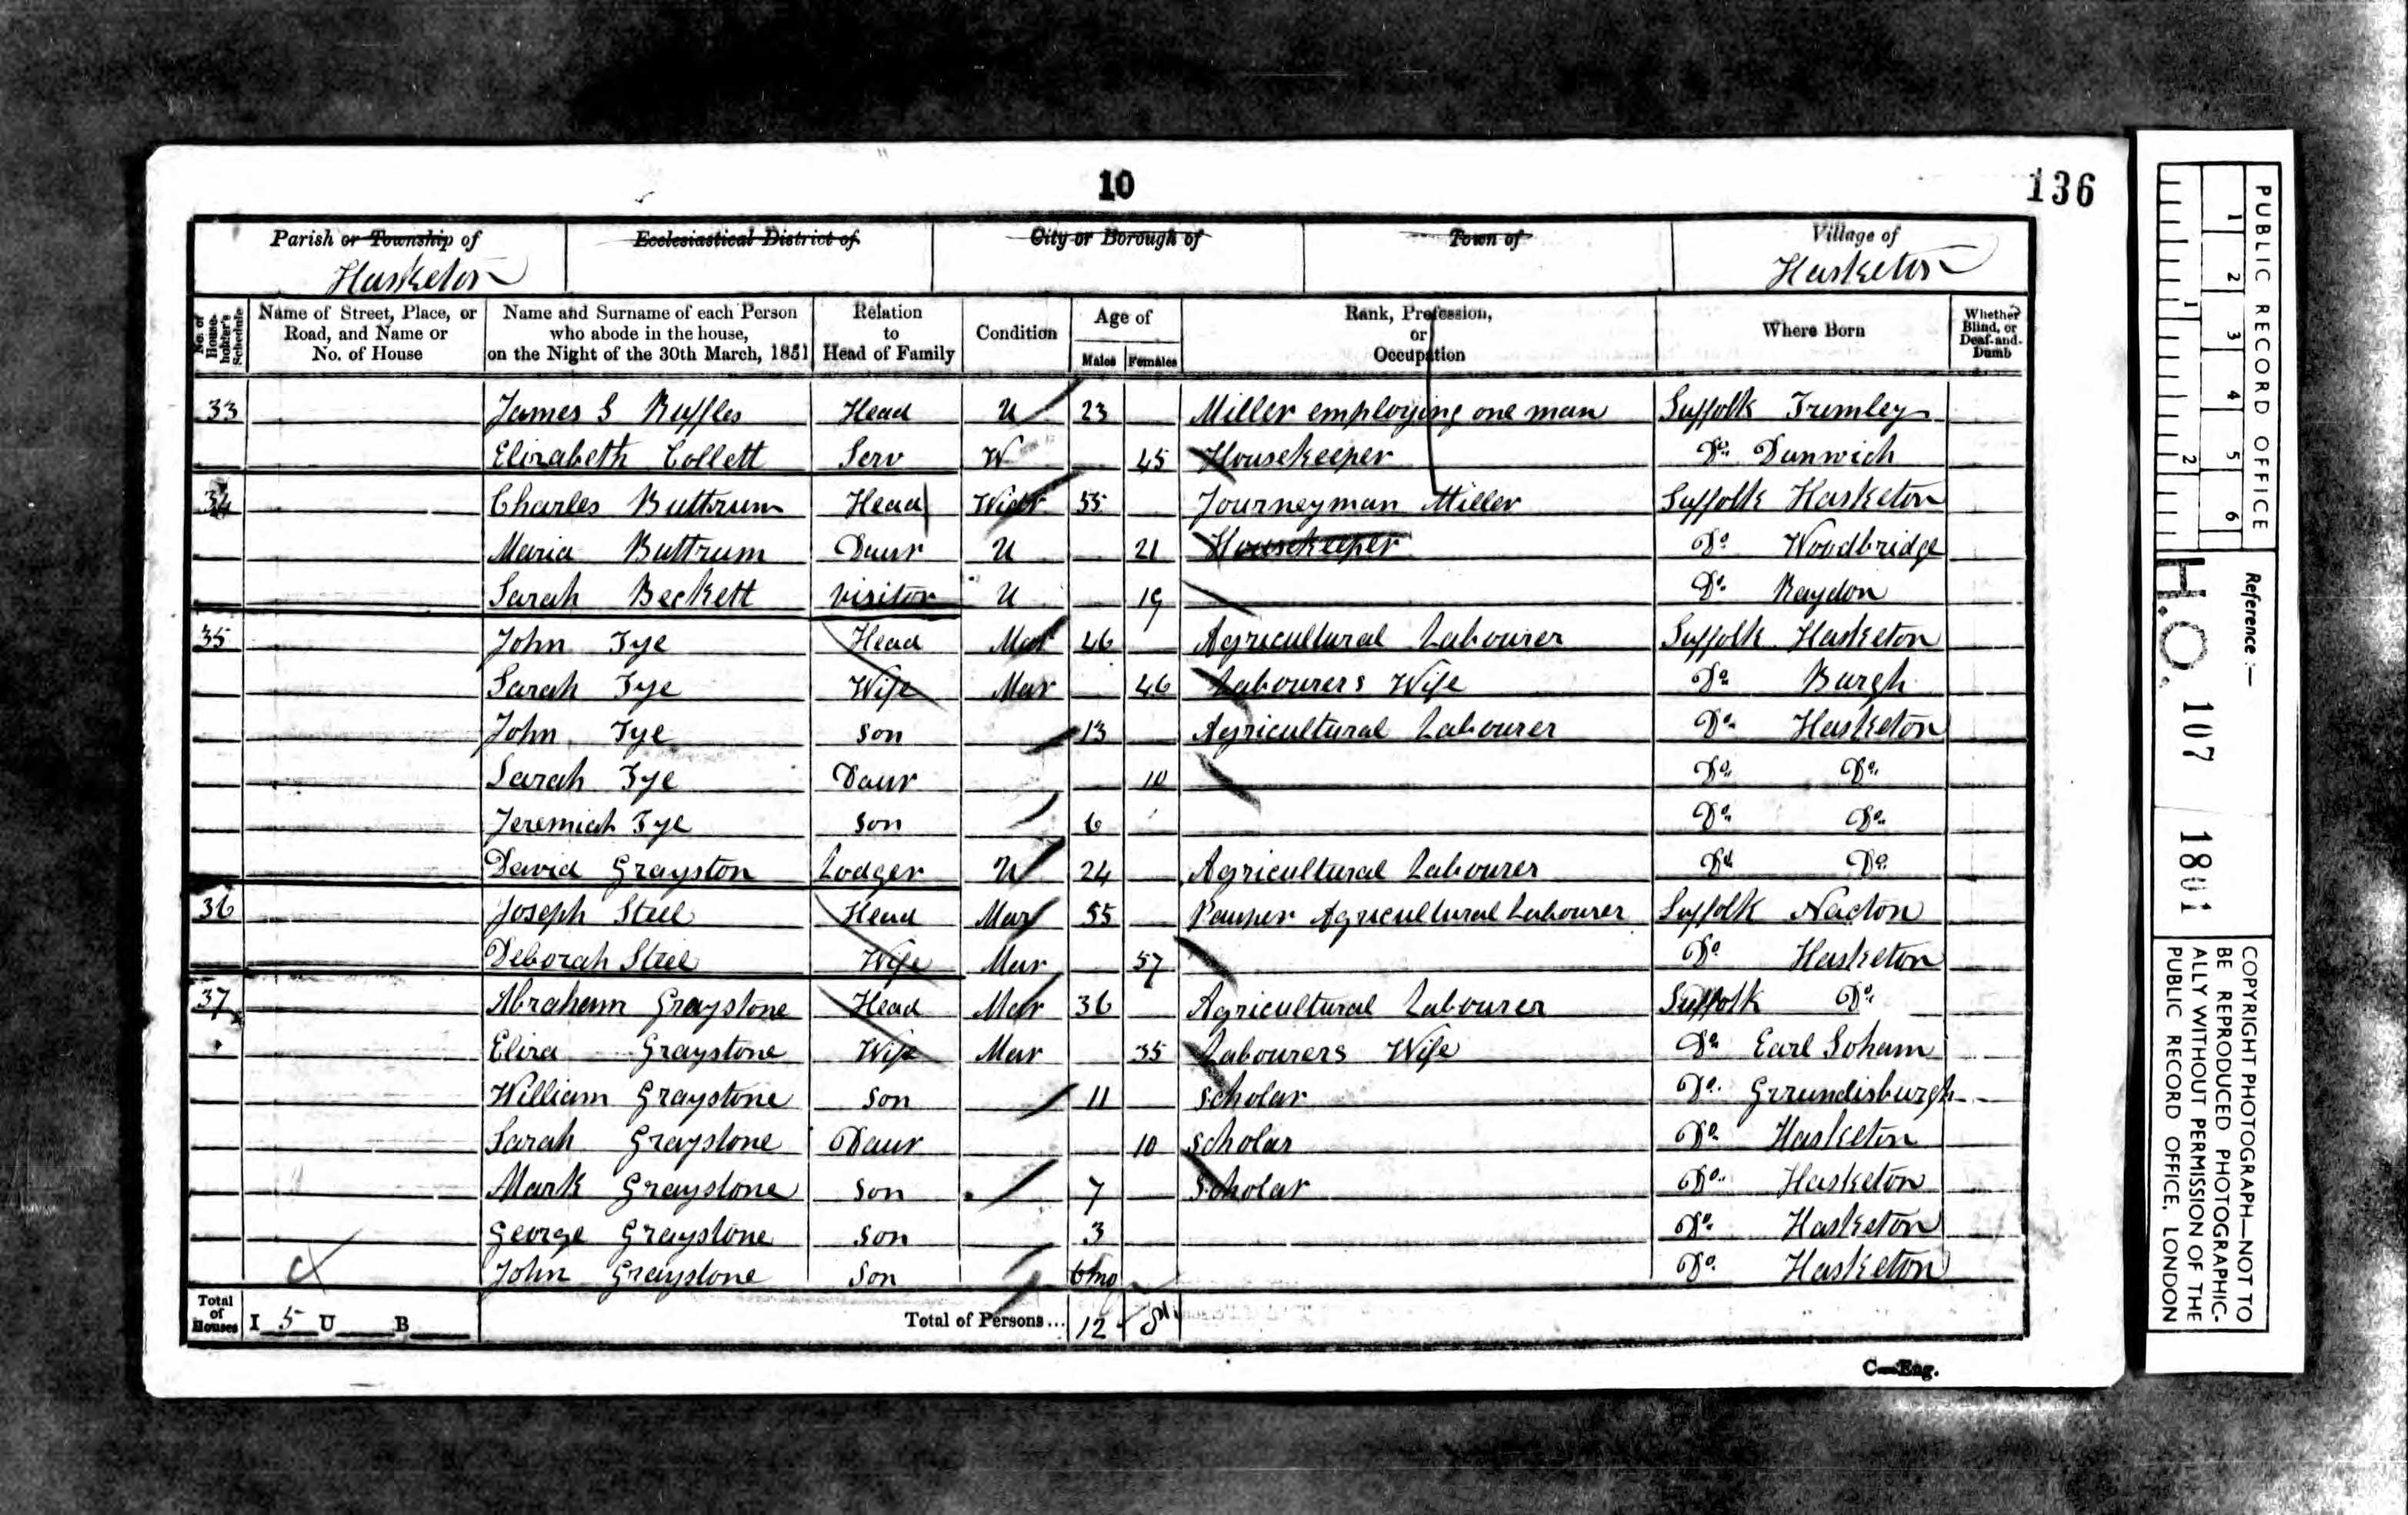 10
136
Parish or Township of
Hasketon
Ecclesiastical District of
City or Borough of
Town of
Village of
Hasketon
No. of House-holder's Schedule
Name of Street, Place, or Road, and Name or No. of House
Name and Surname of each Person who abode in the house, on the Night of the 30th March, 1851
Relation to Head of Family
Condition
Age of
Males Females
Rank, Profession, or Occupation
Where Born
Whether Blind, or Deaf-and-Dumb
33 James S Ruffles Head U 23 Miller employing one man Suffolk Trimley
Elizabeth Collett Serv W 45 Housekeeper Do. Dunwich
34 Charles Buttrum Head Widr 55 Journeyman Miller Suffolk Hasketon
Maria Buttrum Daur U 21 Housekeeper Do Woodbridge
Sarah Beckett Visitor U 19 Do. Raydon
35 John Tye Head Mar 46 Agricultural Labourer Suffolk Hasketon
Sarah Tye Wife Mar 46 Labourers Wife Do Burgh
John Tye Son 13 Agricultural Labourer Do. Hasketon
Sarah Tye Daur 10 Do. Do.
Jeremiah Tye Son 6 Do. Do.
David Grayston Lodger U 24 Agricultural Labourer Do Do.
36 Joseph Steel Head Mar 55 Pauper Agricultural Labourer Suffolk Nacton
Deborah Steel Wife Mar 57 Do Hasketon
37 Abraham Graystone Head Mar 36 Agricultural Labourer Suffolk Do.
Eliza Graystone Wife Mar 35 Labourers Wife Do Earl Soham
William Graystone Son 11 Scholar Do. Grrundisburgh
Sarah Graystone Daur 10 Scholar Do. Hasketon
Mark Graystone Son 7 Scholar Do. Hasketon
George Graystone Son 3 Do. Hasketon
John Graystone Son 6mo Do. Hasketon
Total of Houses I 5 U B Total of Persons... 12 8
C—Eng.
PUBLIC RECORD OFFICE
1 2 3 4 5 6
1 2
Reference:—
H.O. 107 1801
COPYRIGHT PHOTOGRAPH—NOT TO
BE REPRODUCED PHOTOGRAPHIC-
ALLY WITHOUT PERMISSION OF THE
PUBLIC RECORD OFFICE, LONDON